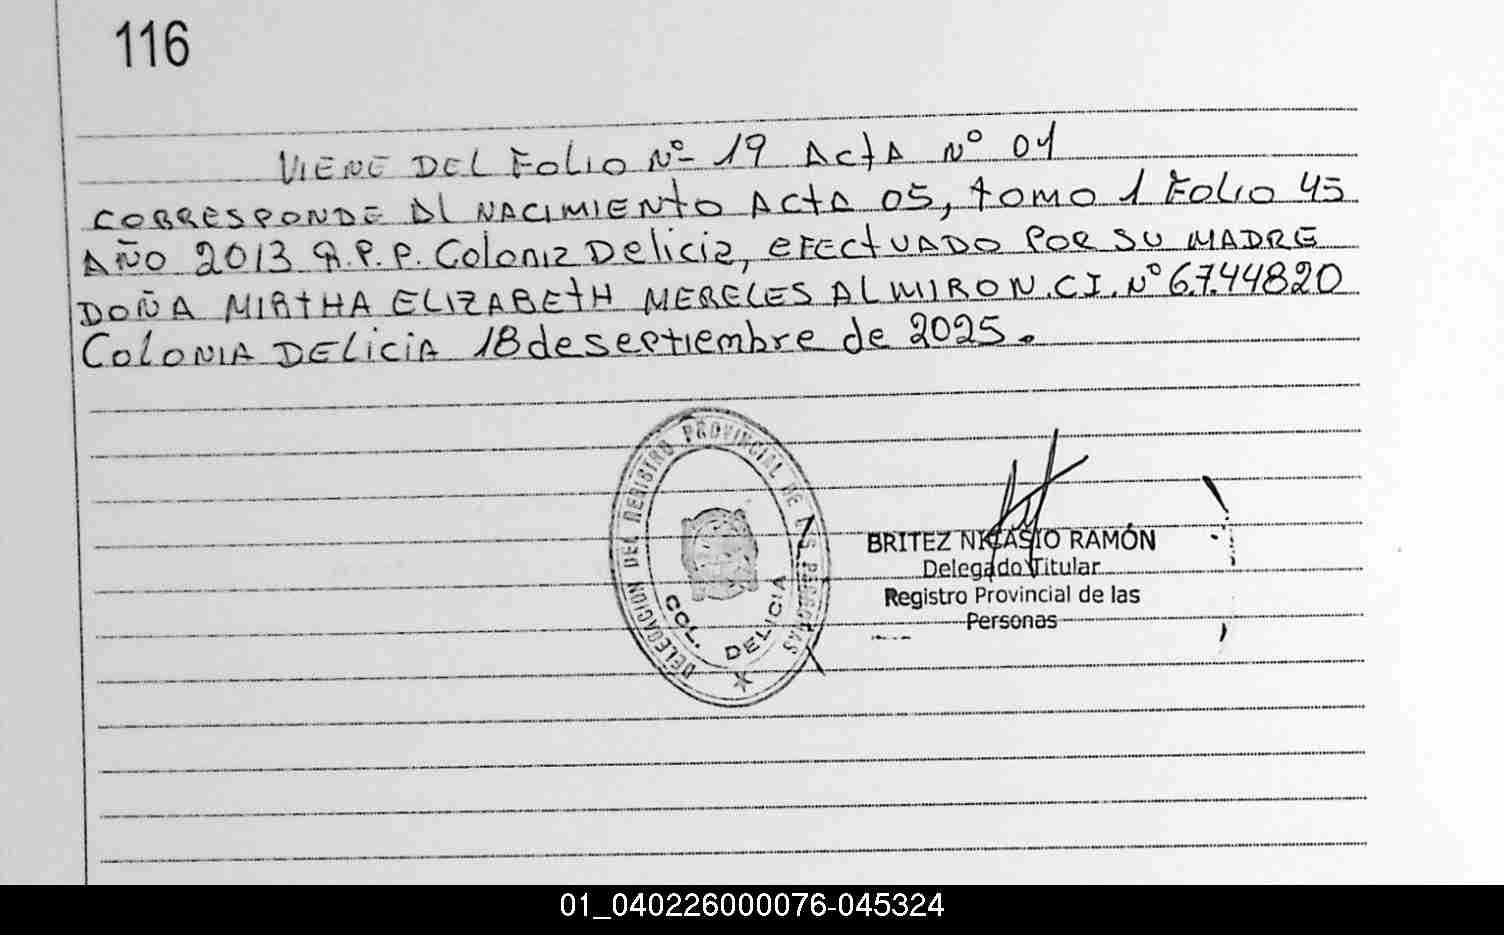 116
VIENE DEL FOLIO Nº 19 ACTA Nº 01
CORRESPONDE AL NACIMIENTO ACTA 05, tomo 1 FOLIO 45
AÑO 2013 R.P.P. Colonia Delicia, EFECTUADO POR SU MADRE
DOÑA MIRTHA ELIZABETH MERELES ALMIRON.CI.Nº 6.744820
COLONIA DELICIA 18 de septiembre de 2025.
DELEGACION DEL REGISTRO PROVINCIAL DE LAS PERSONAS
COL. DELICIA
BRITEZ NICASIO RAMÓN
Delegado Titular
Registro Provincial de las
Personas
01_040226000076-045324